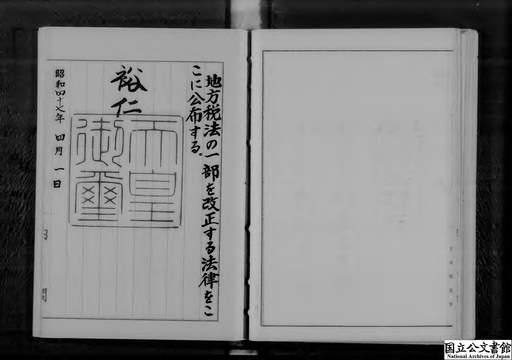 地方税法の一部を改正する法律をこ
こに公布する。
裕仁
天皇
御璽
昭和四十七年四月一日
国立公文書館
National Archives of Japan